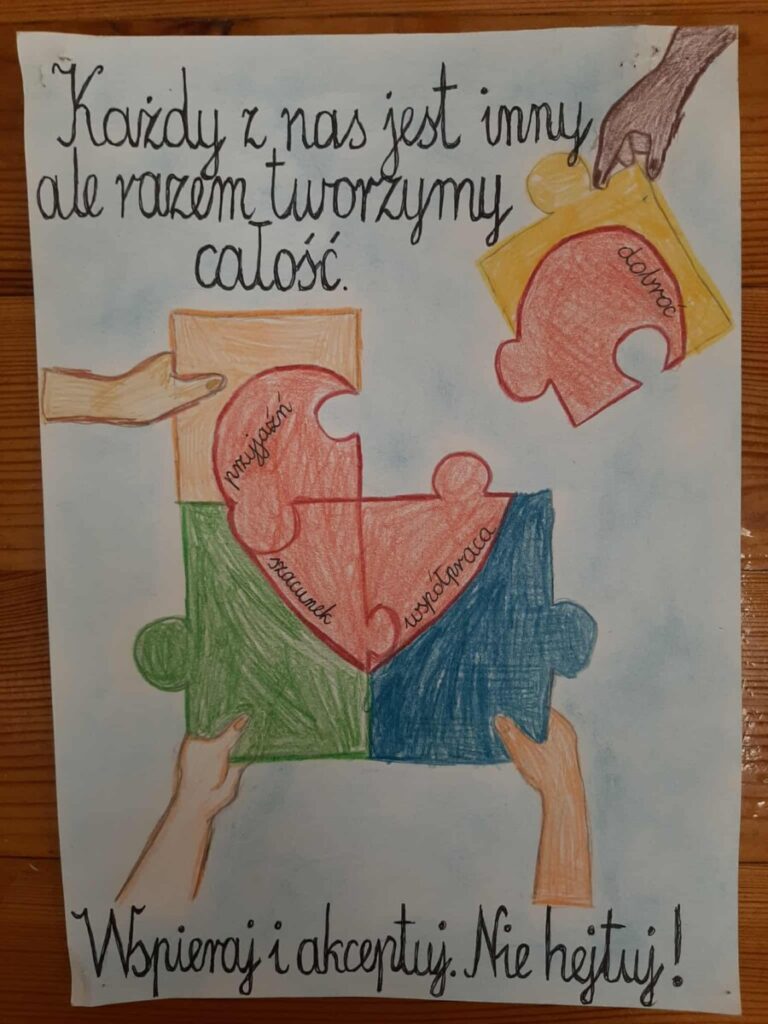 Każdy z nas jest inny
ale razem tworzymy
całość.
dobroć
przyjaźń
szacunek
współpraca
Wspieraj i akceptuj. Nie hejtuj!